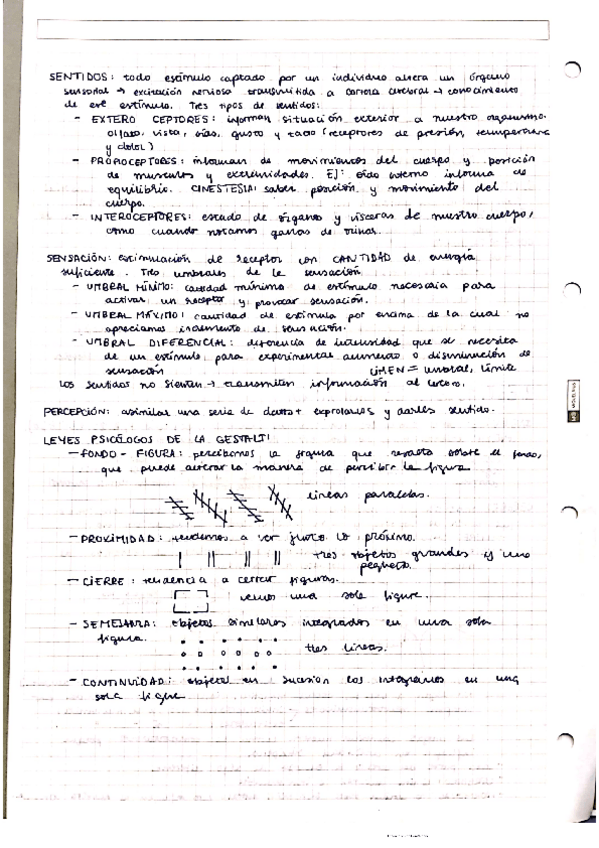 SENTIDOS: todo estímulo captado por un individuo altera un órgano
sensorial → excitación nerviosa transmitida a corteza cerebral → conocimiento
de ese estímulo. Tres tipos de sentidos:
- EXTERO CEPTORES: informan situación exterior a nuestro organismo.
olfato, vista, oído, gusto y tacto (receptores de presión, temperatura
y dolor)
- PROPIOCEPTORES: informan de movimientos del cuerpo y posición
de musculos y extremidades. EJ: oído interno informa de
equilibrio. CINESTESIA: saber posición y movimiento del
cuerpo.
- INTEROCEPTORES: estado de órganos y vísceras de nuestro cuerpo,
como cuando notamos ganas de orinar.
SENSACIÓN: estimulación de receptor con CANTIDAD de energía
suficiente. Tres umbrales de la sensación
- UMBRAL MÍNIMO: cantidad mínima de estímulo necesaria para
activar un receptor y provocar sensación.
- UMBRAL MÁXIMO: cantidad de estímulo por encima de la cual no
apreciamos incremento de sensación.
- UMBRAL DIFERENCIAL: diferencia de intensidad que se necesita
de un estímulo para experimentar aumento o disminución de
sensación LIMEN = umbral, límite
Los sentidos no sienten → transmiten información al cerebro.
PERCEPCIÓN: asimilar una serie de datos + explorarlos y darles sentido.
LEYES PSICÓLOGOS DE LA GESTALT:
- FONDO - FIGURA: percibimos la figura que resalta sobre el fondo,
que puede alterar la manera de percibir la figura
líneas paralelas.
- PROXIMIDAD: tendemos a ver junto lo próximo.
tres objetos grandes y uno
pequeño.
- CIERRE: tendencia a cerrar figuras.
vemos una sola figura.
- SEMEJANZA: objetos similares integrados en una sola
figura.
tres líneas.
- CONTINUIDAD: objetos en sucesión los integramos en una
sola figura.